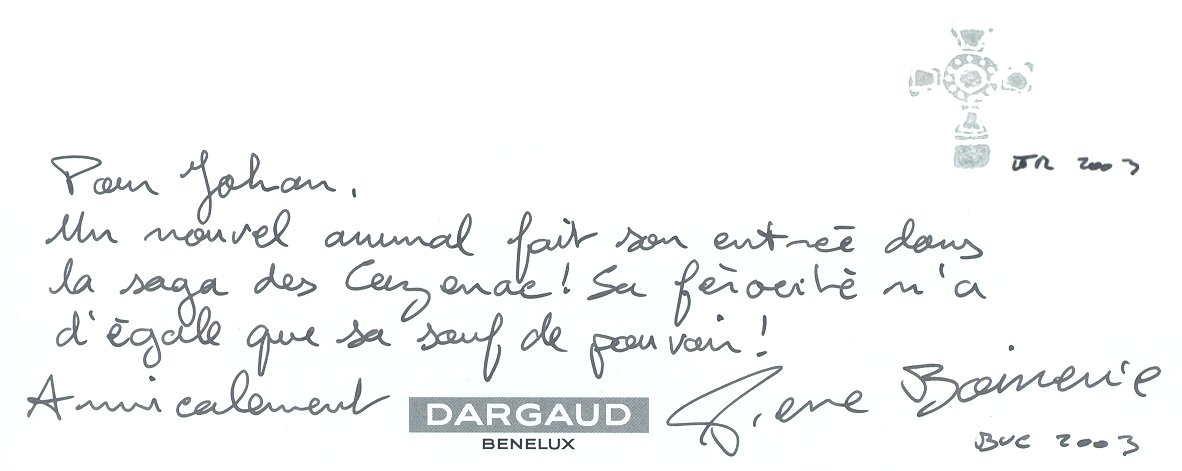 JTR 2003
Pour Johan,
Un nouvel animal fait son entrée dans
la saga des Cazenac! Sa férocité n'a
d'égale que sa soif de pouvoir!
Amicalement
DARGAUD
BENELUX
Pierre Boisserie
BUC 2003